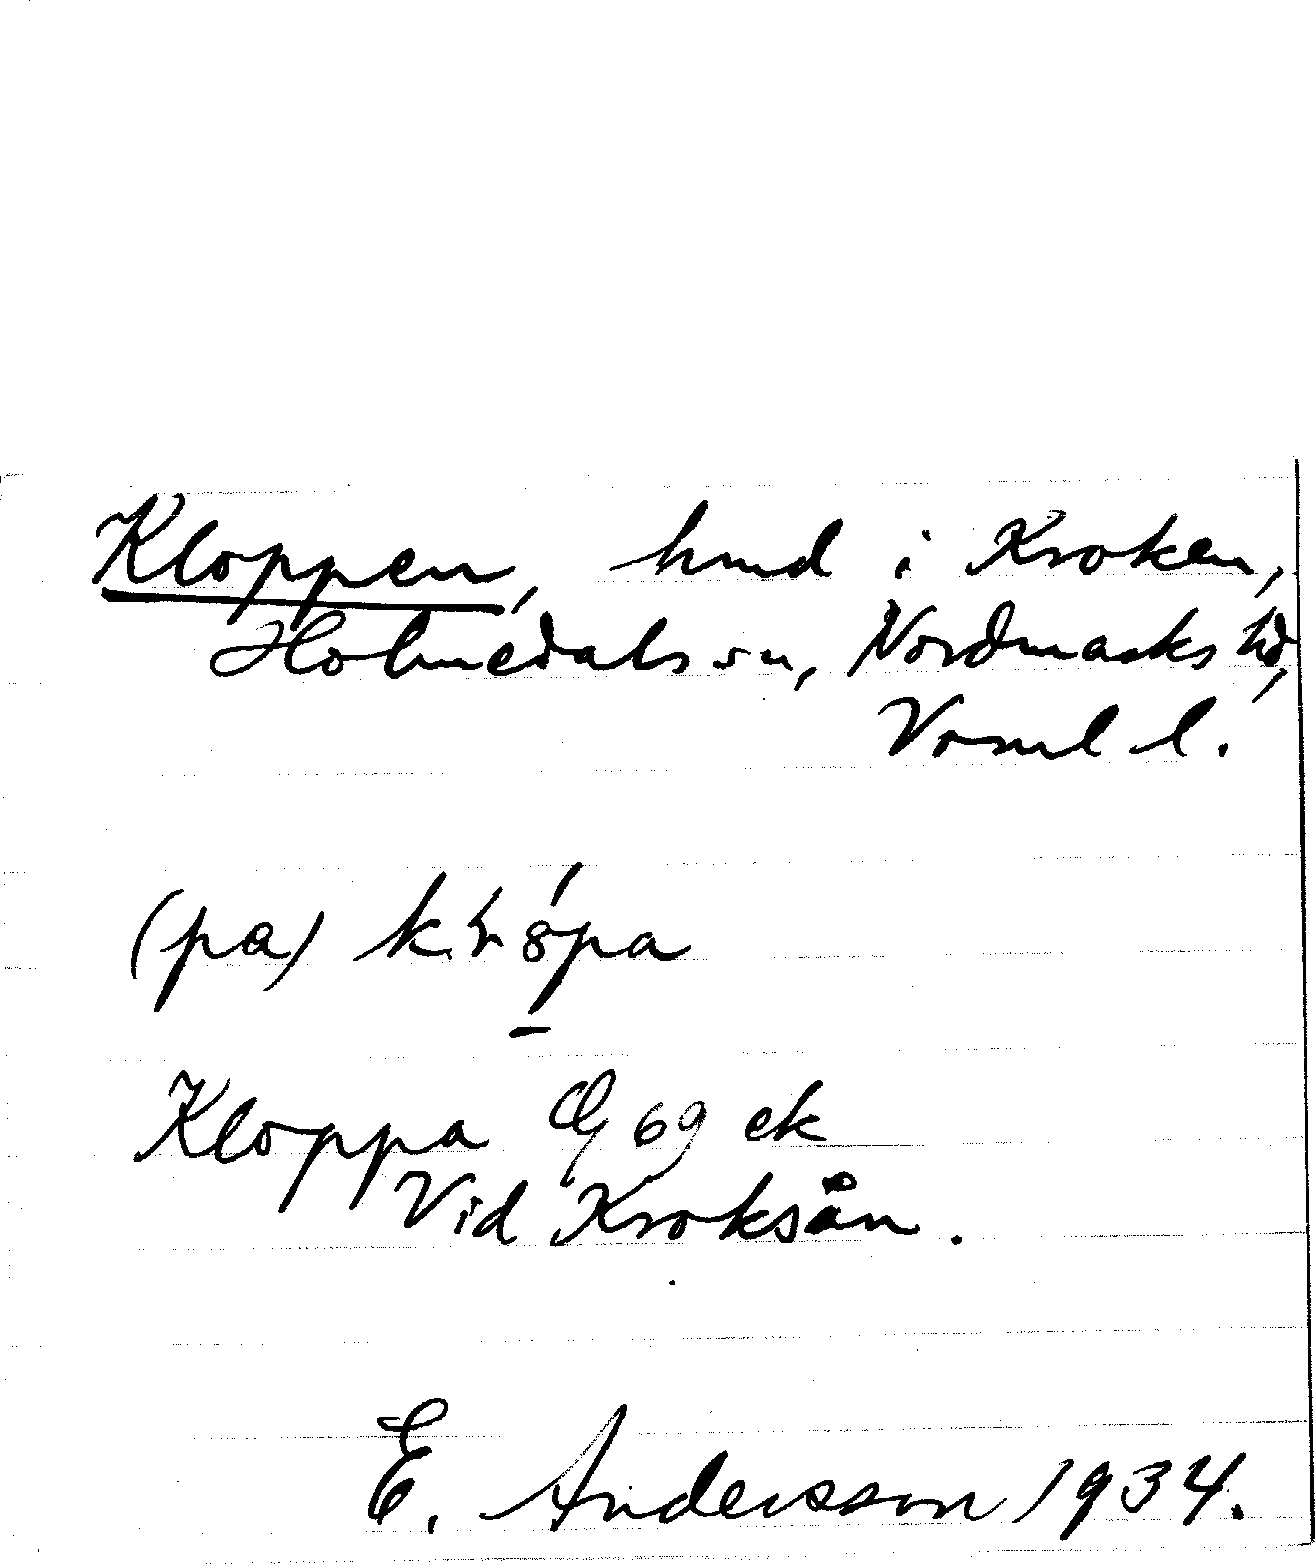 Kloppen, hmd i Kroken,
Holmedals sn, Nordmarks hd,
Värml l.
(pa)
Kloppa 69 ek
Vid Kroksån.
E. Andersson 1934.